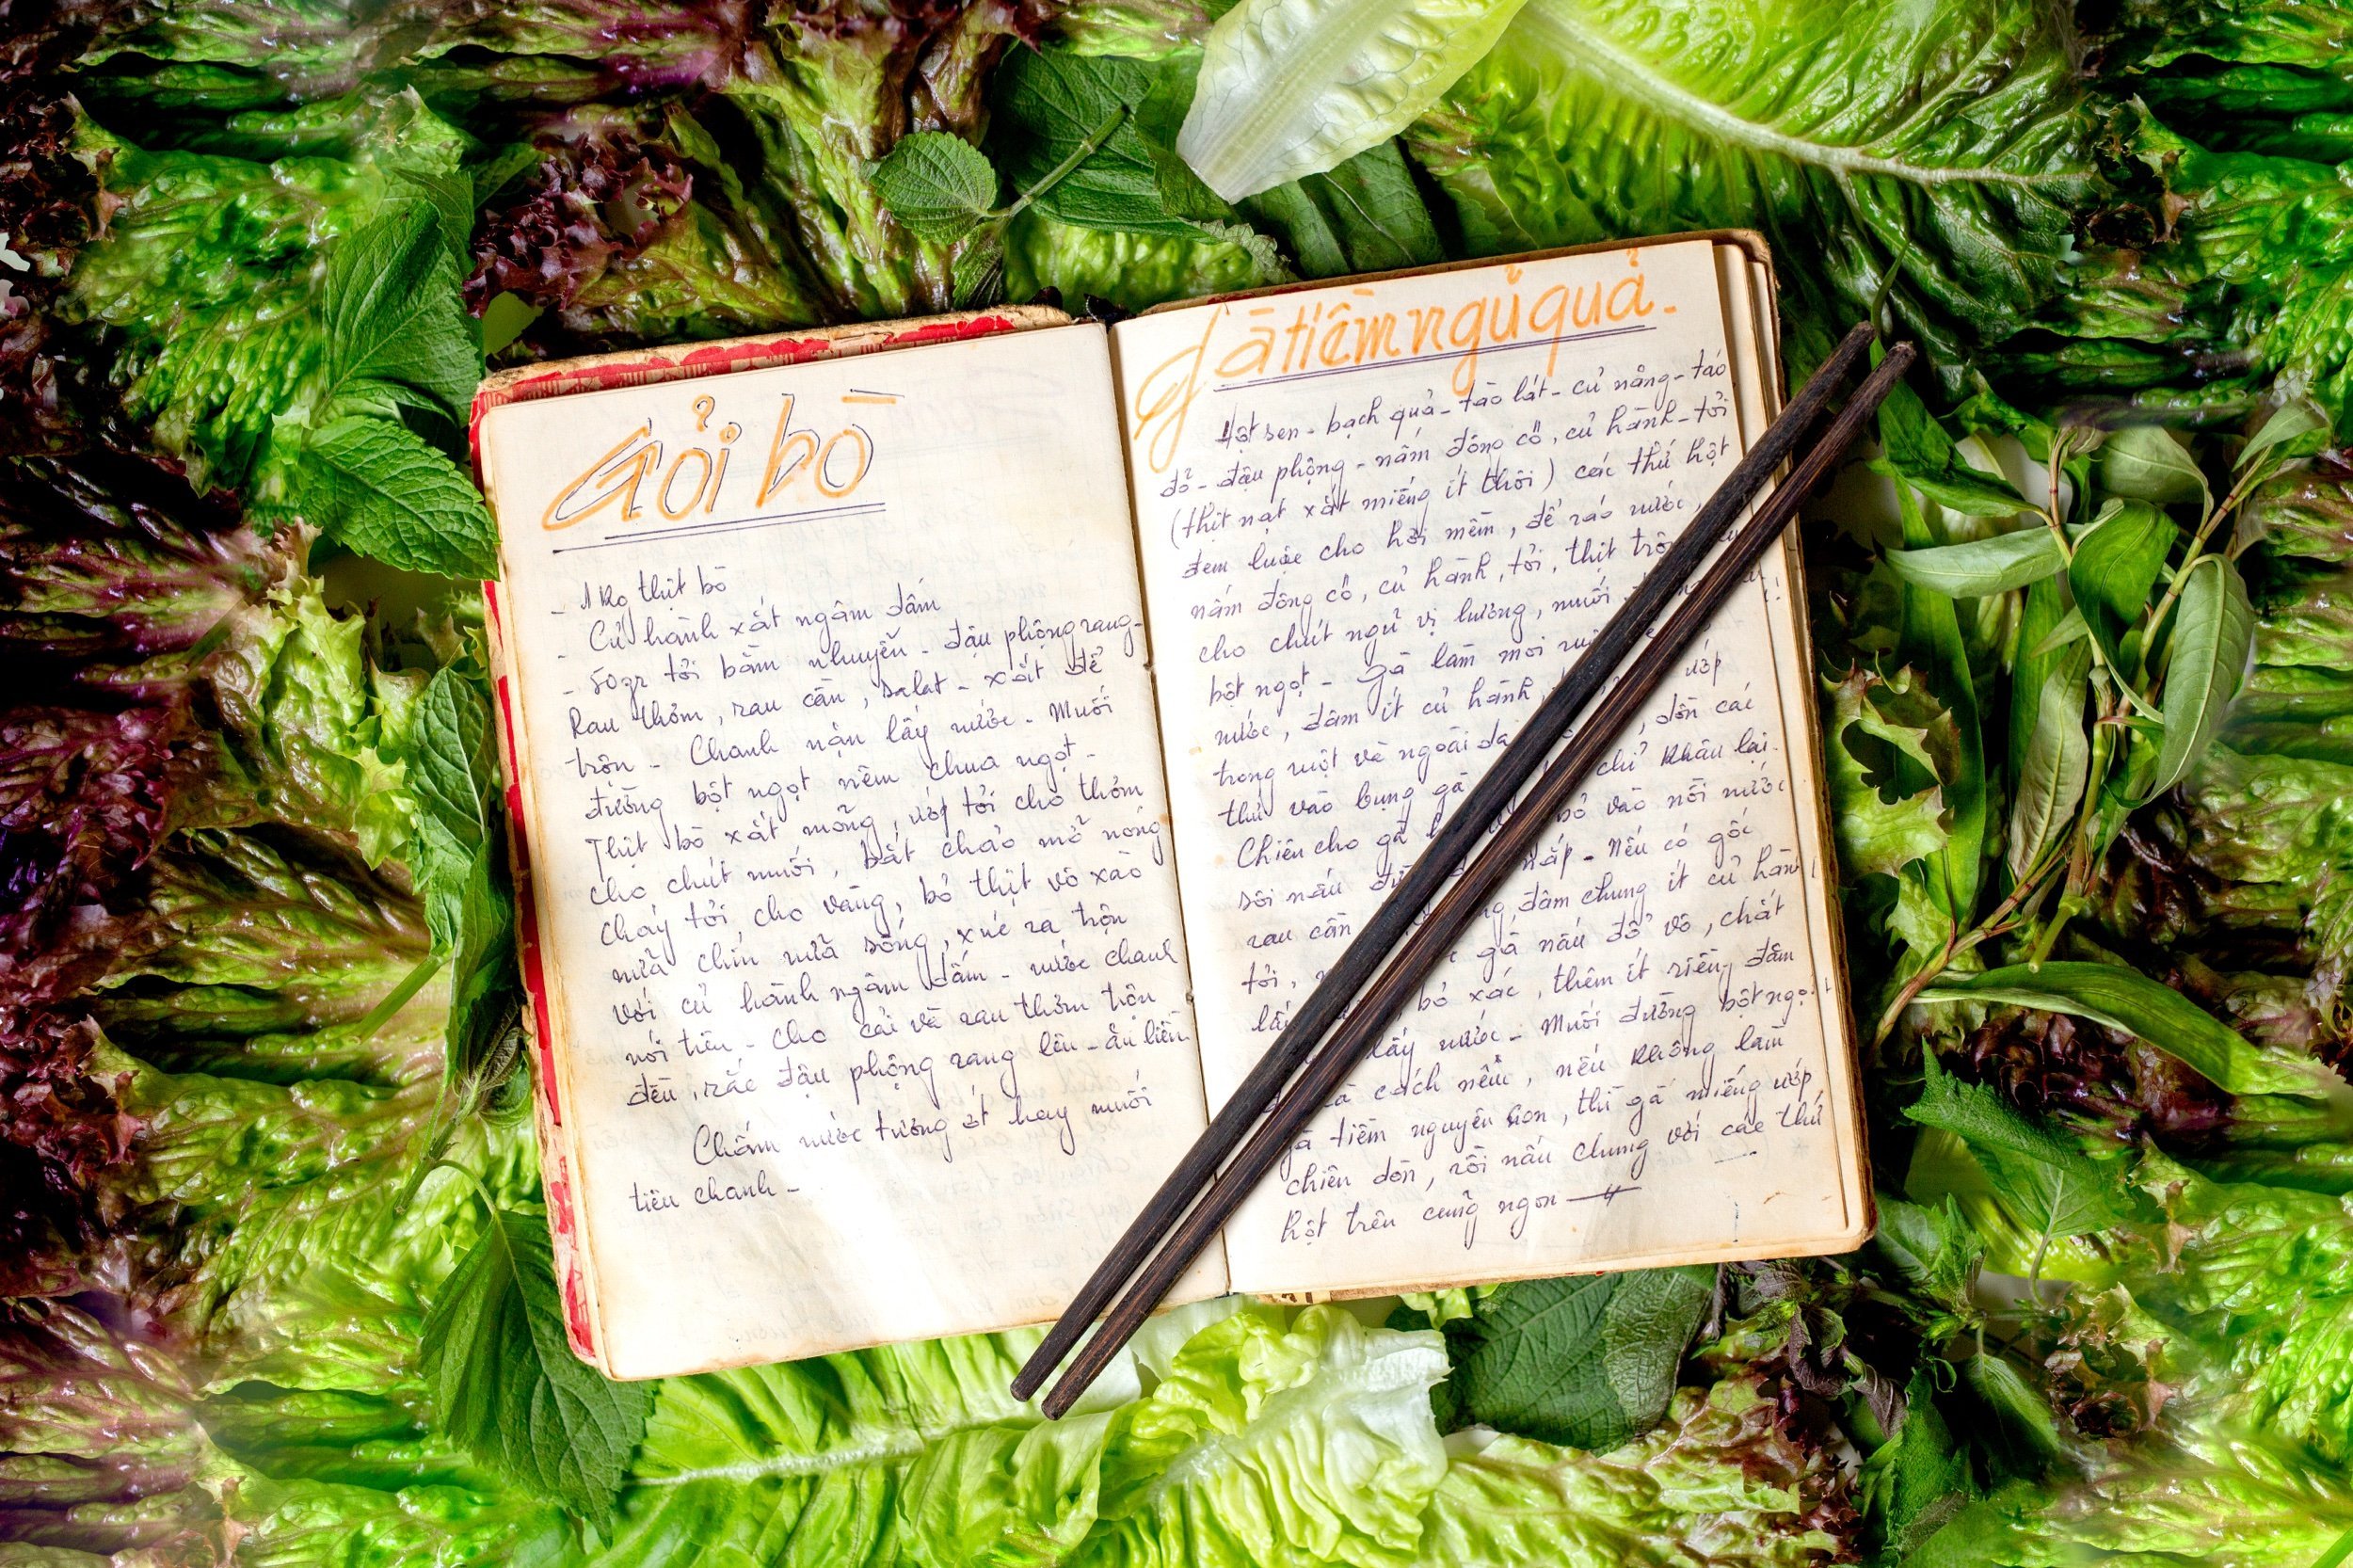 Gỏi bò
- 1 kg thịt bò
- Củ hành xắt ngâm dấm
- 50gr tỏi bằm nhuyễn - đậu phộng rang -
Rau thơm, rau cần, salat - xắt để
trộn - Chanh nặn lấy nước - Muối
đường bột ngọt nêm chua ngọt -
Thịt bò xắt mỏng, ướp tỏi cho thơm
cho chút muối, bắt chảo mỡ nóng
cháy tỏi cho vàng, bỏ thịt vô xào
nửa chín nửa sống, xúc ra trộn
với củ hành ngâm dấm - nước chanh
nói trên - cho cải và rau thơm trộn
đều, rắc đậu phộng rang lên - ăn liền
Chấm nước tương ớt hay muối
tiêu chanh -
Gà tiềm ngủ quả.
Hột sen - bạch quả - táo lát - củ năng - táo
đỏ - đậu phộng - nấm đông cô, củ hành - tỏi
(thịt nạt xắt miếng ít thôi) các thứ hột
đem luộc cho hơi mềm, để ráo nước,
nấm đông cô, củ hành, tỏi, thịt trộn
cho chút ngũ vị hương, muối
bột ngọt - Gà làm moi
nước, đâm ít củ hành ướp
trong ruột và ngoài da, dồn các
thứ vào bụng gà chỉ khâu lại.
Chiên cho gà bỏ vào nồi nước
sôi nấu nắp - Nếu có gốc
rau cần đâm chung ít củ hành
tỏi, gà nấu đổ vô, chắt
bỏ xác, thêm ít riềng đâm
lấy nước - Muối đường bột ngọt
cách nêm, nếu không làm
gà tiềm nguyên con, thì gà miếng ướp
chiên dòn, rồi nấu chung với các thứ
hột trên cũng ngon